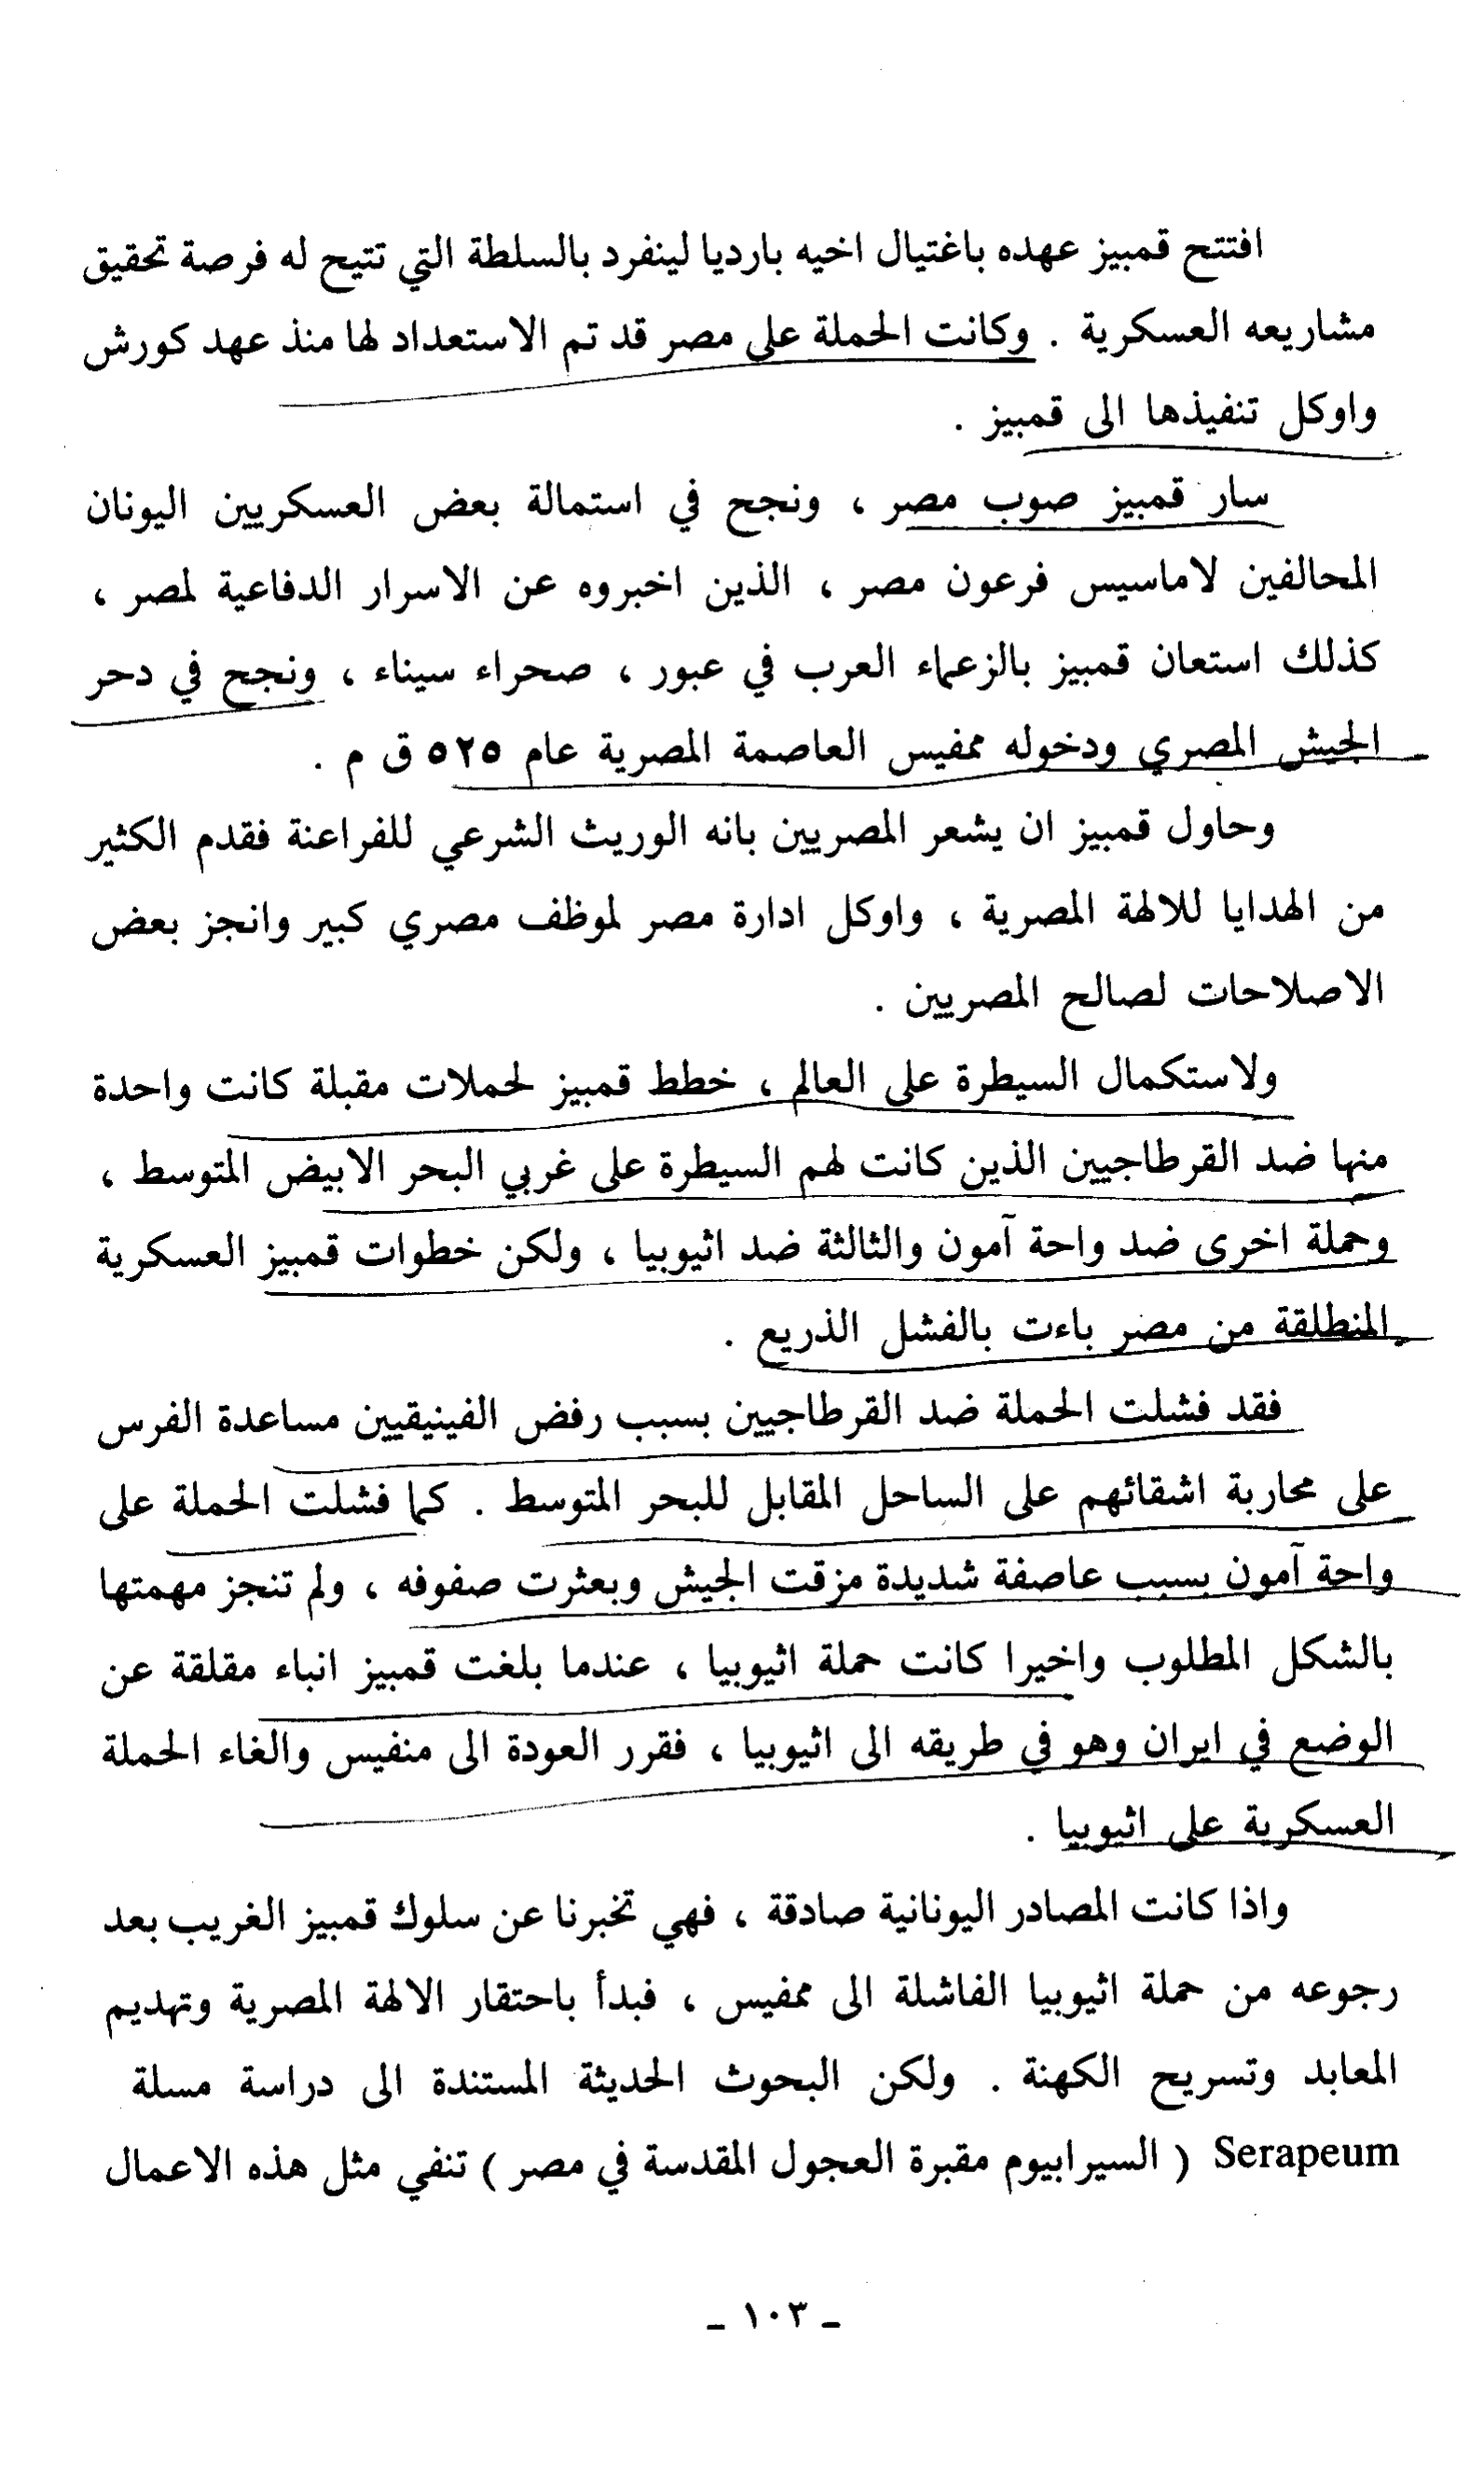 افتتح قمبيز عهده باغتيال اخيه بارديا لينفرد بالسلطة التي تتيح له فرصة تحقيق
مشاريعه العسكرية . وكانت الحملة على مصر قد تم الاستعداد لها منذ عهد كورش
واوكل تنفيذها الى قمبيز .
سار قمبيز صوب مصر ، ونجح في استمالة بعض العسكريين اليونان
المحالفين لاماسيس فرعون مصر ، الذين اخبروه عن الاسرار الدفاعية لمصر ،
كذلك استعان قمبيز بالزعماء العرب في عبور ، صحراء سيناء ، ونجح في دحر
الجيش المصري ودخوله ممفيس العاصمة المصرية عام ٥٢٥ ق م .
وحاول قمبيز ان يشعر المصريين بانه الوريث الشرعي للفراعنة فقدم الكثير
من الهدايا للالهة المصرية ، واوكل ادارة مصر لموظف مصري كبير وانجز بعض
الاصلاحات لصالح المصريين .
ولاستكمال السيطرة على العالم ، خطط قمبيز لحملات مقبلة كانت واحدة
منها ضد القرطاجيين الذين كانت لهم السيطرة على غربي البحر الابيض المتوسط ،
وحملة اخرى ضد واحة آمون والثالثة ضد اثيوبيا ، ولكن خطوات قمبيز العسكرية
المنطلقة من مصر باءت بالفشل الذريع .
فقد فشلت الحملة ضد القرطاجيين بسبب رفض الفينيقيين مساعدة الفرس
على محاربة اشقائهم على الساحل المقابل للبحر المتوسط . كما فشلت الحملة على
واحة آمون بسبب عاصفة شديدة مزقت الجيش وبعثرت صفوفه ، ولم تنجز مهمتها
بالشكل المطلوب واخيرا كانت حملة اثيوبيا ، عندما بلغت قمبيز انباء مقلقة عن
الوضع في ايران وهو في طريقه الى اثيوبيا ، فقرر العودة الى منفيس والغاء الحملة
العسكرية على اثيوبيا .
واذا كانت المصادر اليونانية صادقة ، فهي تخبرنا عن سلوك قمبيز الغريب بعد
رجوعه من حملة اثيوبيا الفاشلة الى ممفيس ، فبدأ باحتقار الالهة المصرية وتهديم
المعابد وتسريح الكهنة . ولكن البحوث الحديثة المستندة الى دراسة مسلة
Serapeum ( السيرابيوم مقبرة العجول المقدسة في مصر ) تنفي مثل هذه الاعمال
ـ ١٠٣ ـ